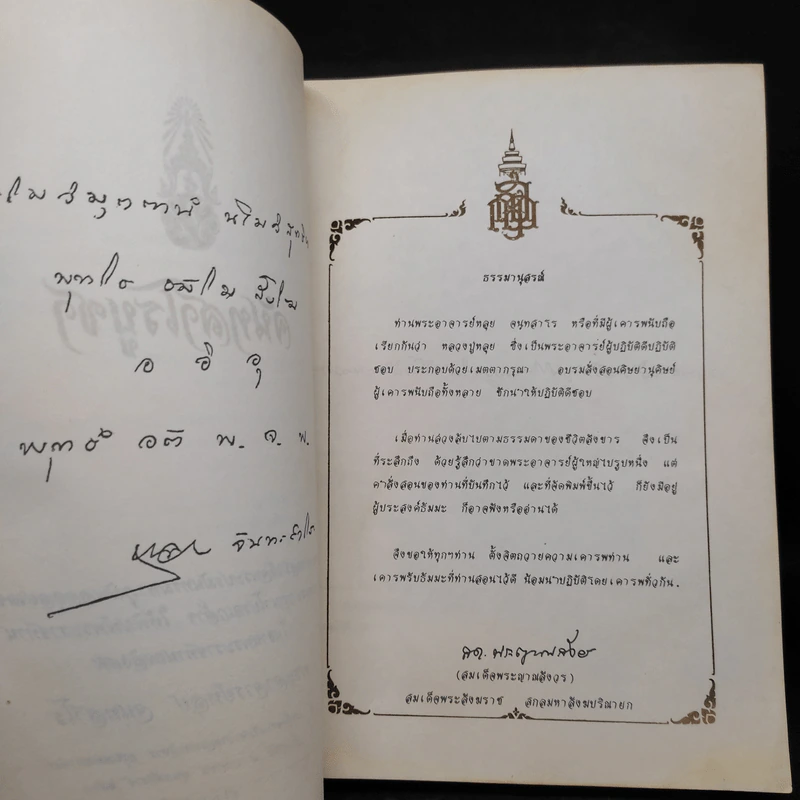 นโมวิมุตตานํ นโมวิมุตติยา
พุทโธ ธมฺโม สังโฆ
อ อิ อุ
พุทธํ อตฺถิ พ. จ. พ.
หลุย จันทสาโร
ธรรมานุสรณ์
ท่านพระอาจารย์หลุย จนฺทสาโร หรือที่มีผู้เคารพนับถือ
เรียกกันว่า หลวงปู่หลุย ซึ่งเป็นพระอาจารย์ผู้ปฏิบัติดีปฏิบัติ
ชอบ ประกอบด้วยเมตตากรุณา อบรมสั่งสอนศิษยานุศิษย์
ผู้เคารพนับถือทั้งหลาย ชักนำให้ปฏิบัติดีชอบ
เมื่อท่านล่วงลับไปตามธรรมดาของชีวิตสังขาร จึงเป็น
ที่ระลึกถึง ด้วยรู้สึกว่าขาดพระอาจารย์ผู้ใหญ่ไปรูปหนึ่ง แต่
คำสั่งสอนของท่านที่บันทึกไว้ และที่จัดพิมพ์ขึ้นไว้ ก็ยังมีอยู่
ผู้ประสงค์ธัมมะ ก็อาจฟังหรืออ่านได้
จึงขอให้ทุกๆท่าน ตั้งจิตถวายความเคารพท่าน และ
เคารพรับธัมมะที่ท่านสอนไว้ดี น้อมนำปฏิบัติโดยเคารพทั่วกัน.
สด. พระญาณสังวร
(สมเด็จพระญาณสังวร)
สมเด็จพระสังฆราช สกลมหาสังฆปริณายก